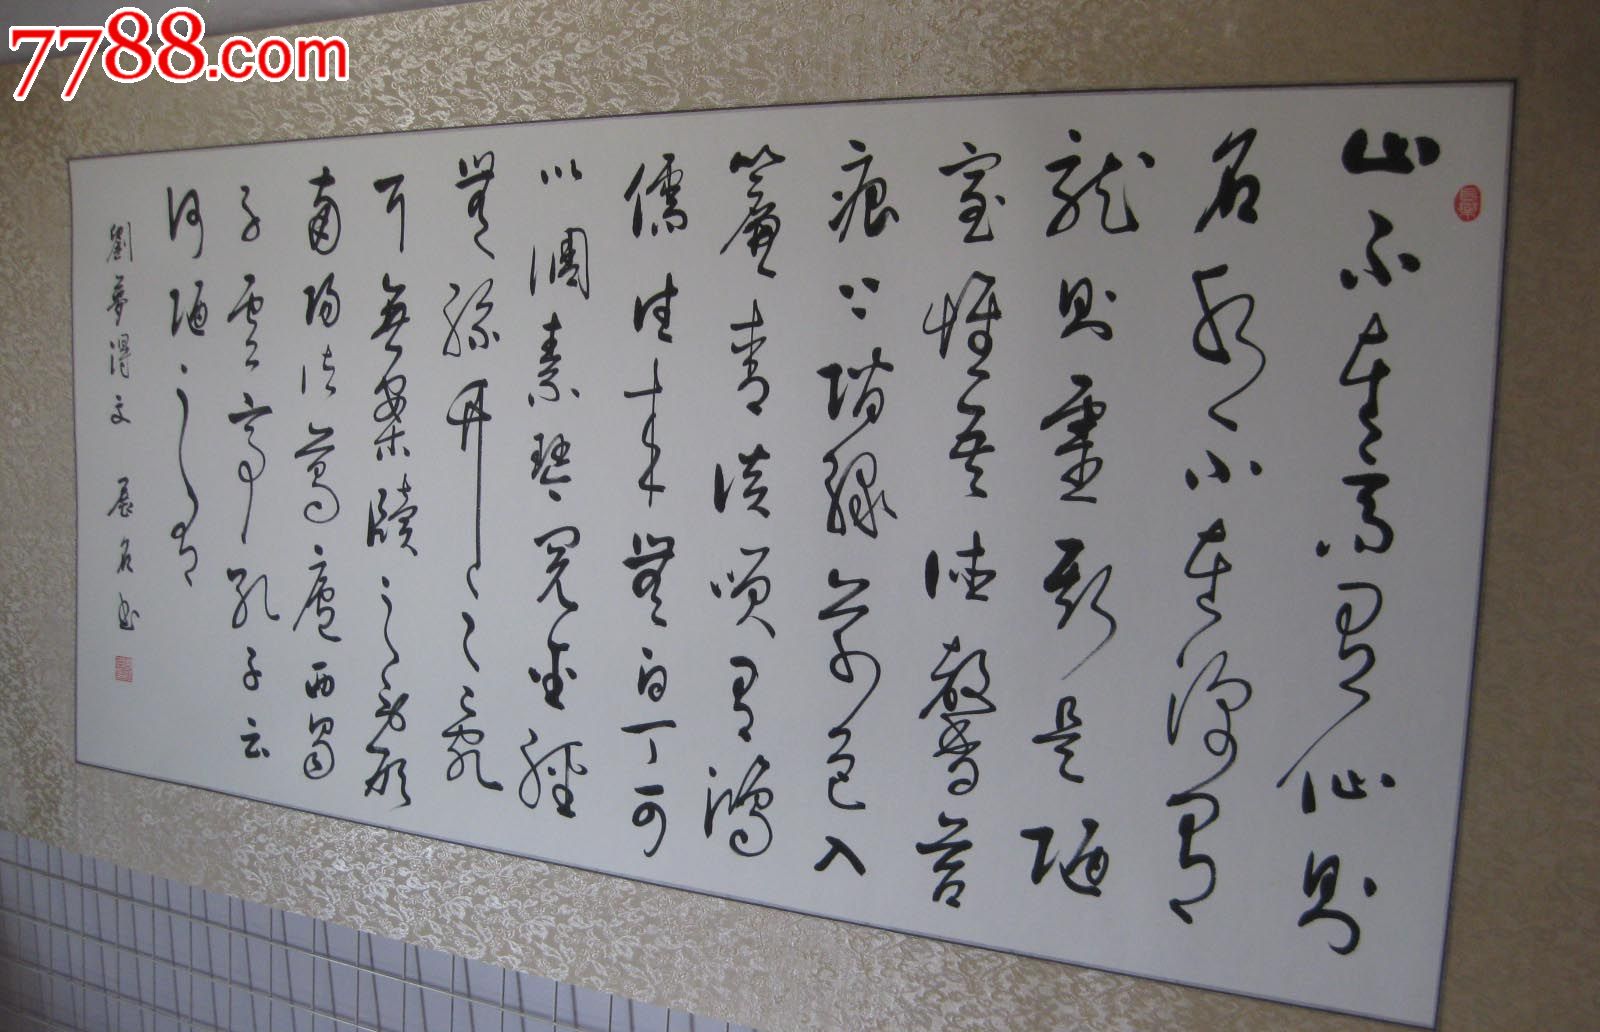 7788.com
山不在高有仙則
名水不在深有
龍則靈斯是陋
室惟吾德馨苔
痕上階綠草色入
簾青談笑有鴻
儒往來無白丁可
以調素琴閱金經
無絲竹之亂
耳無案牘之勞形
南陽諸葛廬西蜀
子雲亭孔子云
何陋之有
劉夢得文 展名书